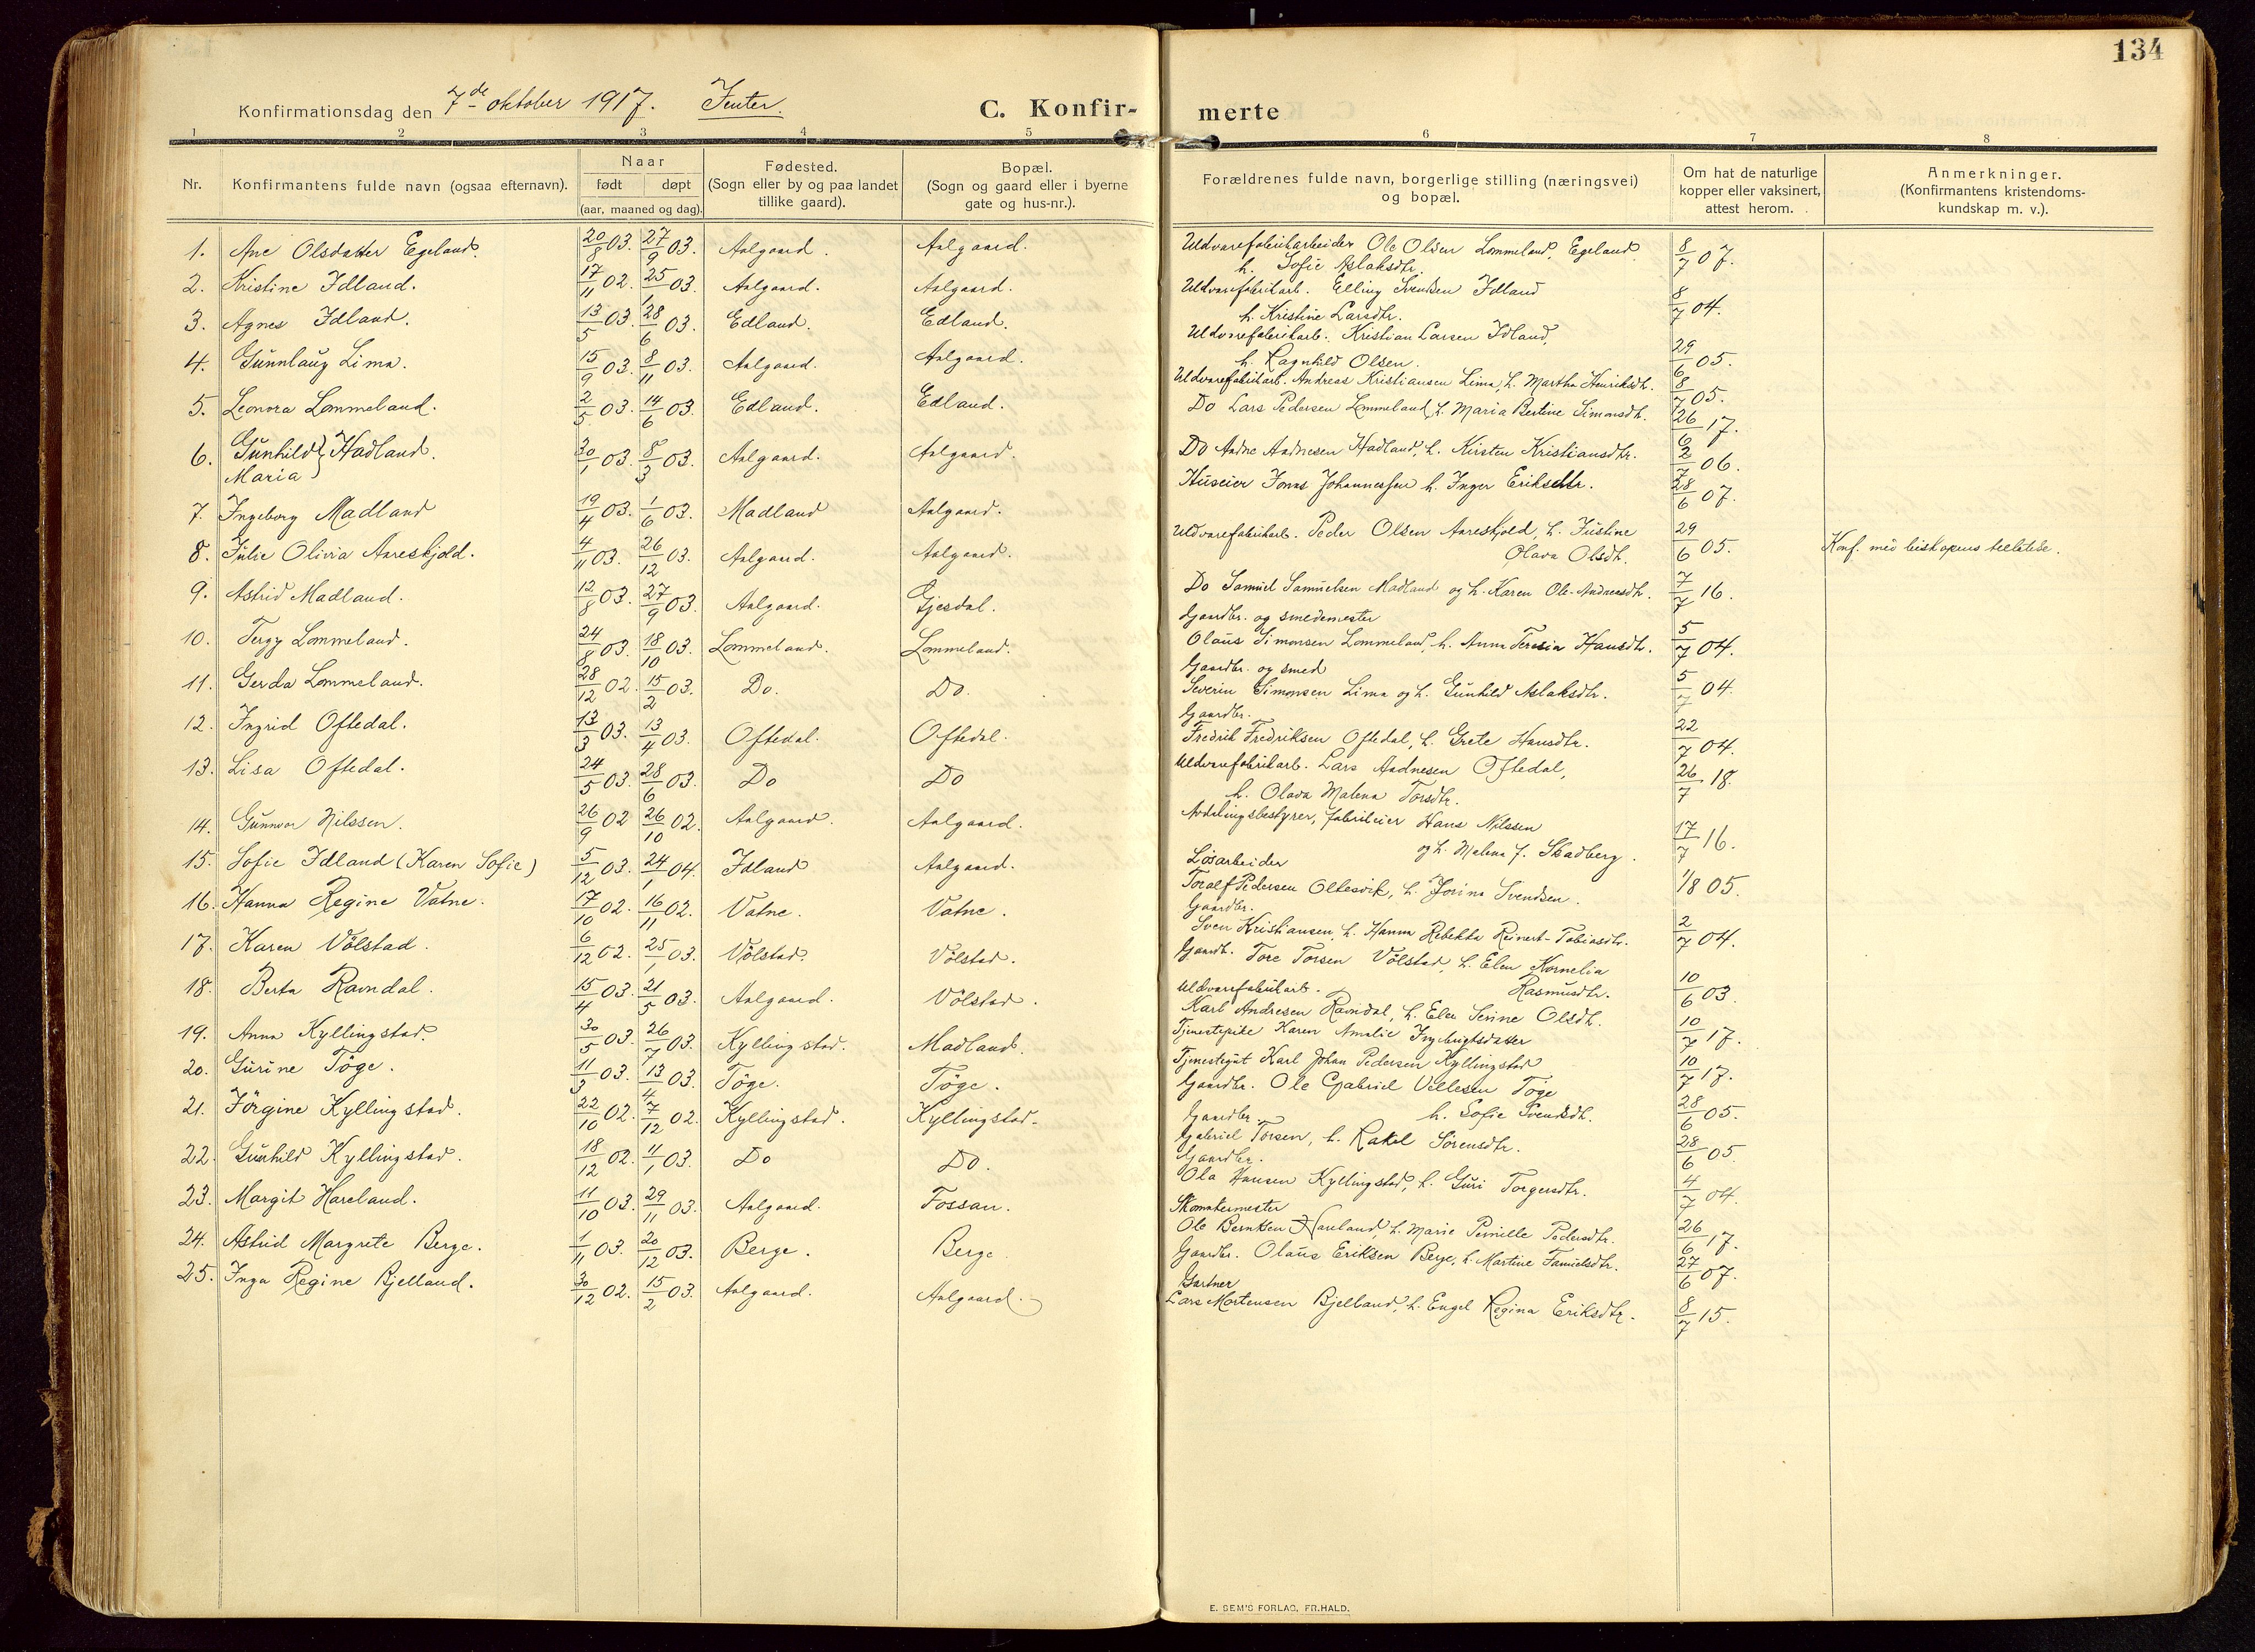 134
Konfirmationsdag den 7de oktober 1917. Jenter.
C. Konfir-
merte
1 2 3 4 5 6 7 8
Nr.
Konfirmantens fulde navn (ogsaa efternavn).
Naar
født døpt
(aar, maaned og dag).
Fødested.
(Sogn eller by og paa landet
tillike gaard).
Bopæl.
(Sogn og gaard eller i byerne
gate og hus-nr.).
Forældrenes fulde navn, borgerlige stilling (næringsvei)
og bopæl.
Om hat de naturlige
kopper eller vaksinert,
attest herom.
Anmerkninger.
(Konfirmantens kristendoms-
kundskap m. v.).
1. Ane Olsdatter Egeland. 20/8 03. 27/9 03. Aalgaard. Aalgaard. Uldvarefabrikarbeider Ole Olsen Lommeland, Egeland 8/7 07.
h. Sofie Aslaksdtr.
2. Kristine Idland. 17/11 02. 25/1 03. Aalgaard. Aalgaard. Uldvarefabrikarb. Elling Svendsen Idland 8/7 04.
h. Kristine Larsdtr.
3. Agnes Idland. 13/5 03. 28/6 03. Edland. Edland. Uldvarefabrikarb. Kristian Larsen Idland, 29/6 05.
h. Ragnhild Olsen.
4. Gunnlaug Lima. 15/9 03. 8/11 03. Aalgaard. Aalgaard. Uldvarefabrikarb. Andreas Kristiansen Lima, h. Martha Henriksdtr. 8/7 05.
5. Leonora Lommeland. 2/5 03. 14/6 03. Edland. Edland. Do Lars Pedersen Lommeland, h. Maria Bertine Simonsdtr. 26/6 17.
6. Gunhild Maria Hadland. 30/1 03. 8/3 03. Aalgaard. Aalgaard. Do Andne Andnesen Hadland, h. Kirsten Kristiansdtr. 2/7 06.
7. Ingeborg Madland 19/4 03. 1/6 03. Madland Aalgaard. Huseier Jonas Johannessen h. Inger Eriksdtr. 28/6 07.
8. Julie Olivia Aareskjold. 4/11 03. 26/12 03. Aalgaard. Aalgaard. Uldvarefabrikarb. Peder Olsen Aareskjold, h. Justine 29/6 05. Konf. med biskopens tillatelse.
Olava Olsdtr.
9. Astrid Madland. 12/8 03. 27/9 03. Aalgaard. Gjesdal. Do Samuel Samuelsen Madland og h. Karen Ole-Andreasdtr. 7/7 16.
10. Tergy Lommeland. 24/8 03. 18/10 03. Lommeland. Lommeland. Gaardbr. og smedemester
Olaus Simonsen Lommeland, h. Anna Teresia Hansdtr. 5/7 04.
11. Gerda Lommeland. 28/12 02. 15/2 03. Do. Do. Gaardbr. og smed
Severin Simonsen Lima og h. Gunhild Aslaksdtr. 5/7 04.
12. Ingrid Oftedal. 13/3 03. 13/4 03. Oftedal. Oftedal. Gaardbr.
Fredrik Fredriksen Oftedal, h. Grete Hansdtr. 22/7 04.
13. Lisa Oftedal. 24/5 03. 28/6 03. Do Do Uldvarefabrikarb. Lars Andnesen Oftedal, 26/7 18.
h. Olava Malena Torsdtr.
14. Gunnvor Nilssen. 26/9 02 26/10 02. Aalgaard. Aalgaard. Avdelingsbestyrer, fabrikeier Hans Nilssen
og h. Malena f. Skadberg. 17/7 16.
15. Sofie Idland (Karen Sofie) 5/12 03. 24/1 04. Idland Aalgaard. Løsarbeider
Toralf Pedersen Oltesvik, h. Jorina Svendsen. 1/8 05.
16. Hanna Regine Vatne. 17/10 02. 16/11 02. Vatne. Vatne. Gaardbr.
Sven Kristiansen, h. Hanna Rebekka Reinert-Tobiasdtr. 2/7 04.
17. Karen Vølstad. 6/12 02. 25/1 03. Vølstad. Vølstad. Gaardb. Tore Torsen Vølstad, h. Elen Kornelia
Rasmusdtr. 10/6 03.
18. Berta Ravndal. 15/4 03. 21/5 03. Aalgaard. Vølstad. Uldvarefabrikarb.
Karl Andresen Ravndal, h. Elen Serine Olsdtr. 10/7 17.
19. Anna Kyllingstad. 30/5 03. 26/7 03. Kyllingstad. Madland. Tjenestepike Karen Amalie Ingebrigtsdatter
Tjenestegut Karl Johan Pedersen Kyllingstad 10/7 17.
20. Gurine Tøge. 11/3 03. 13/4 03. Tøge. Tøge. Gaardbr. Ole Gabriel Vellesen Tøge
h. Sofie Svendsdtr. 28/6 05.
21. Jørgine Kyllingstad. 22/10 02. 7/12 02. Kyllingstad. Kyllingstad. Gaardbr.
Gabriel Torsen, h. Rakel Sørensdtr. 28/6 05.
22. Gunhild Kyllingstad. 18/12 02. 11/1 03. Do Do. Gaardbr.
Ola Hansen Kyllingstad, h. Guri Torgersdtr. 4/7 04.
23. Margit Hareland. 11/10 03. 29/11 03. Aalgaard. Fossan. Skomakermester
Ole Berntsen Hareland, h. Marie Pernille Pedersdtr. 26/6 17.
24. Astrid Margrete Berge. 1/11 03. 20/12 03. Berge. Berge. Gaardbr. Olaus Eriksen Berge, h. Martine Samuelsdtr. 27/6 07.
25. Inga Regine Bjelland. 30/12 02. 15/2 03. Aalgaard. Aalgaard. Gartner
Lars Mortensen Bjelland, h. Engel Regina Eriksdtr. 8/7 15.
E. SEM'S FORLAG, FR.HALD.